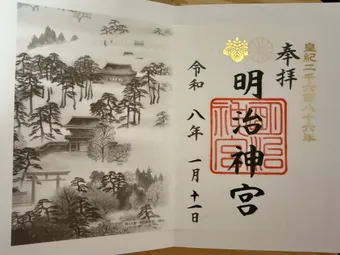 皇紀二千六百八十六年
奉拝
明治神宮
明治
神宮
令和八年 一月十一日